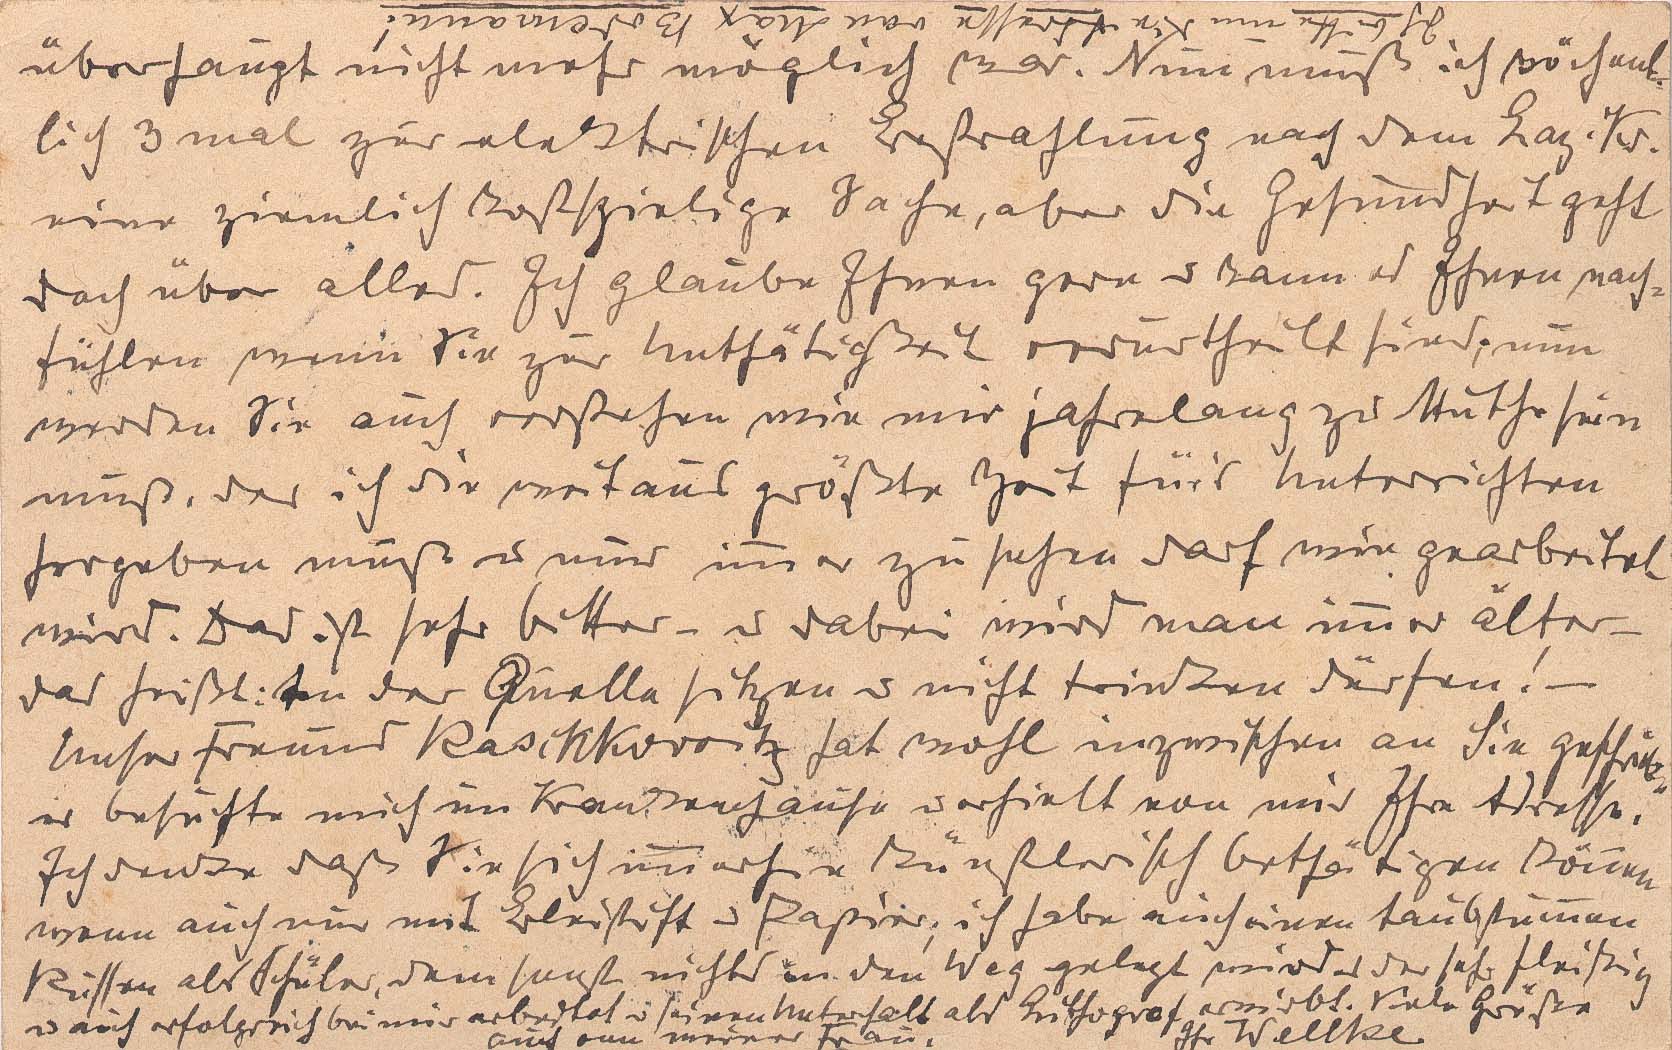 Ich bitte um die Adresse von Max Bodemann!
überhaupt nicht mehr möglich war. Nun muß ich wöchent-
lich 3 mal zur elektrischen Bestrahlung nach dem Laz. Kr.
eine ziemlich kostspielige Sache, aber die Gesundheit geht
doch über alles. Ich glaube Ihnen gern u kann es Ihnen nach-
fühlen wenn Sie zur Unthätigkeit verurtheilt sind; nun
werden Sie auch verstehen wie mir jahrelang zu Muthe sein
muß, der ich die weitaus größte Zeit für's Unterrichten
hergeben muß u nur im̄er zusehen darf wie gearbeitet
wird. Das ist sehr bitter – u dabei wird man im̄er älter –
das heißt: An der Quelle sitzen u nicht trinken dürfen! –
Unser Freund Raschkowitz hat wohl inzwischen an Sie geschrieb.
er besuchte mich im Krankenhause u erhielt von mir Ihre Adresse.
Ich denke daß Sie sich im̄erhin künstlerisch bethätigen kön̄en
wenn auch nur mit Bleistift u Papier; ich habe auch einen taubstum̄en
Russen als Schüler, dem sonst nichts in den Weg gelegt wird u der sehr fleißig
u auch erfolgreich bei mir arbeitet u seinen Unterhalt als Lithograf erwirbt. Viele Grüße
auch von meiner Frau. Ihr Wellke